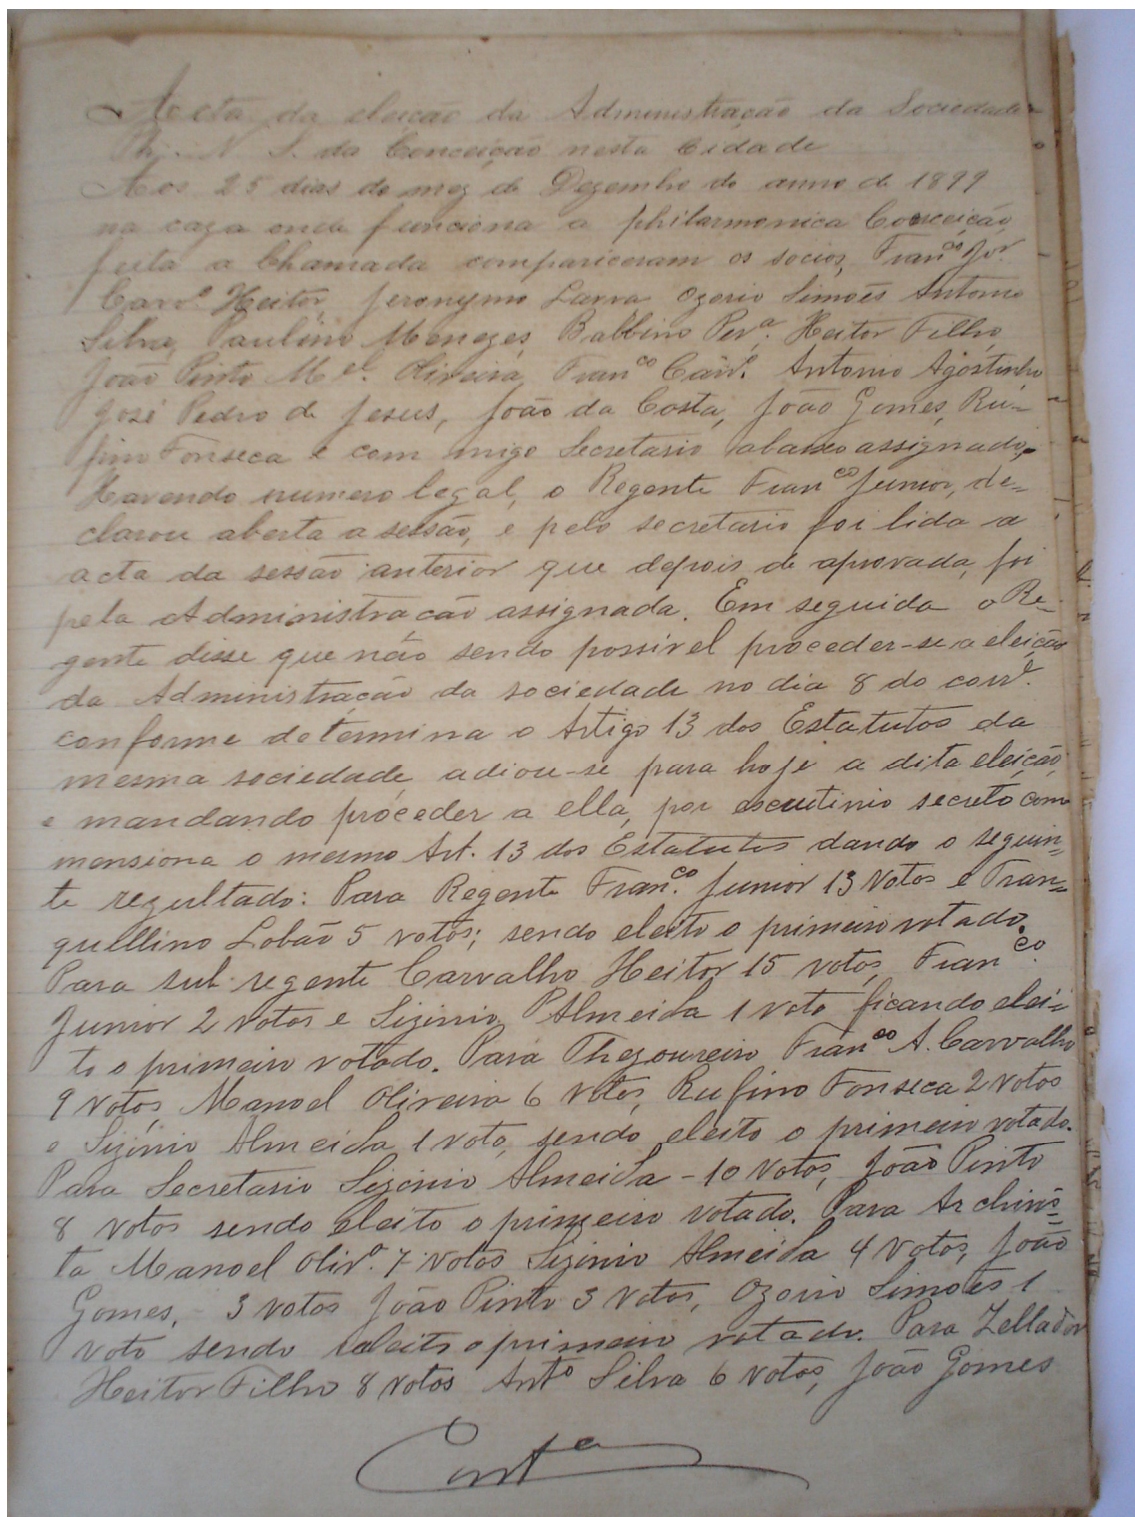 Acta da eleição da Administração da Sociedade
Ph. N. S. da Conceição nesta Cidade
Aos 25 dias do mez de Dezembro do anno de 1899
na caza onde funciona a philarmonica Conceição,
feita a Chamada compariceram os socios, Franco Jor.
Carvo Heitor, Jeronymo Lavra Ozorio Simões Antonio
Silva, Paulino Menezes, Balbino Pera. Heitor Filho,
João Pinto Mel. Oliveira, Franco Carvo. Antonio Agostinho
José Pedro de Jesus, João da Costa, João Gomes, Ru-
fino Fonseca e com migo Secretario abaixo assignado,
Havendo numero legal, o Regente Franco Junior, de-
clarou aberta a sessão, e pelo secretario foi lida a
acta da sessão anterior que depois de aprovada, foi
pela Administração assignada. Em seguida o Re-
gente disse que não sendo possivel proceder-se a eleição
da Administração da sociedade no dia 8 do corre.
conforme determina o Artigo 13 dos Estatutos da
mesma sociedade, adiou-se para hoje a dita eleição,
e mandando proceder a ella, por escrutinio secreto como
mensiona o mesmo Art. 13 dos Estatutos dando o seguin-
te rezultado: Para Regente Franco. Junior 13 Votos e Tran-
quillino Lobão 5 votos; sendo eleito o primeiro votado.
Para sub-regente Carvalho Heitor 15 votos, Franco.
Junior 2 votos e Sizinio P Almeida 1 voto ficando elei-
to o primeiro votado. Para Thezoureiro Franco A. Carvalho
9 votos, Manoel Oliveira 6 votos, Rufino Fonseca 2 votos
e Sizinio Almeida 1 voto, sendo eleito o primeiro votado.
Para Secretario Sizinio Almeida - 10 Votos, João Pinto
8 votos sendo eleito o primeiro votado. Para Archivis-
ta Manoel Olivo. 7 votos Sizinio Almeida 4 votos, João
Gomes, - 3 votos João Pinto 3 votos, Ozorio Simões 1
voto sendo eleito o primeiro votado. Para Zellador
Heitor Filho 8 votos Anto Silva 6 votos, João Gomes
Costa